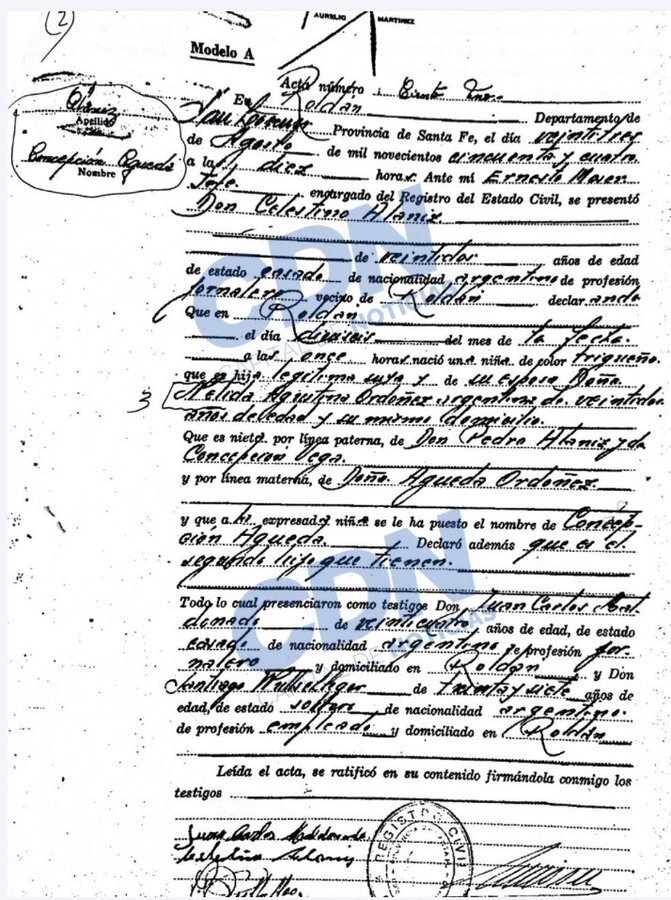 (2)
AURELIO MARTINEZ
Modelo A
Acta número Ciento
Alániz
Apellido
Concepción Agueda
Nombre
En Roldán Departamento de
San Lorenzo Provincia de Santa Fe, el día veintitres
de Agosto de mil novecientos cincuenta y cuatro
a las diez horas. Ante mi Ernesto
Jefe encargado del Registro del Estado Civil, se presentó
Don Celestino Alaniz
de veintidos años de edad
de estado casado de nacionalidad argentino de profesión
jornalero vecino de Roldán declarando
Que en Roldán
el día dieciseis del mes de la fecha
a las once horas nació una niña de color trigueño
que es hija legítima suya y de su esposa Doña
3 Nélida Agustina Ordoñez argentina de veintidos
años de edad y su mismo domicilio.
Que es nieta por línea paterna, de Don Pedro Alaniz y de
Concepcion Vega.
y por línea materna, de Doña Agueda Ordoñez.
y que a la expresada niña se le ha puesto el nombre de Concep-
ción Agueda. Declaró además que es el
segundo hijo que tienen.
Todo lo cual presenciaron como testigos Don Juan Carlos Mal
donado de veinticuatro años de edad, de estado
casado de nacionalidad argentino de profesión jor
nalero y domiciliado en Roldán y Don
Santiago de treinta y siete años de
edad, de estado soltero de nacionalidad argentino.
de profesión empleado y domiciliado en Roldán
Leída el acta, se ratificó en su contenido firmándola conmigo los
testigos
Juan Carlos Maldonado
Celestino Alaniz
REGISTRO CIVIL
CDN
NOTICIAS
CDN
NOTICIAS